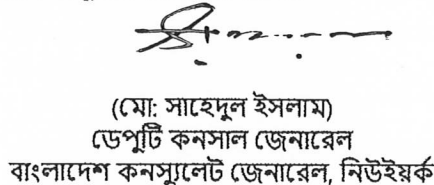 (মো: সাহেদুল ইসলাম)
ডেপুটি কনসাল জেনারেল
বাংলাদেশ কনস্যুলেট জেনারেল, নিউইয়র্ক